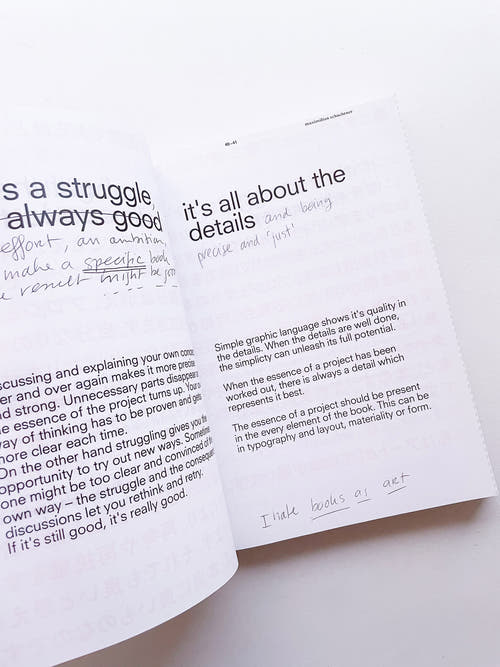 s a struggle,
always good
effort, an ambition,
make a specific book
e result might be good
scussing and explaining your own conce
er and over again makes it more precise
nd strong. Unnecessary parts disappear
e essence of the project turns up. Your
ay of thinking has to be proven and gets
ore clear each time.
On the other hand struggling gives you the
opportunity to try out new ways. Sometimes
one might be too clear and convinced of
own way – the struggle and the consequent
discussions let you rethink and retry.
If it's still good, it's really good.
40–41
maximilian schachtner
it's all about the
details and being
precise and 'just'
Simple graphic language shows it's quality in
the details. When the details are well done,
the simplicty can unleash its full potential.
When the essence of a project has been
worked out, there is always a detail which
represents it best.
The essence of a project should be present
in the every element of the book. This can be
in typography and layout, materiality or form.
I hate books as art